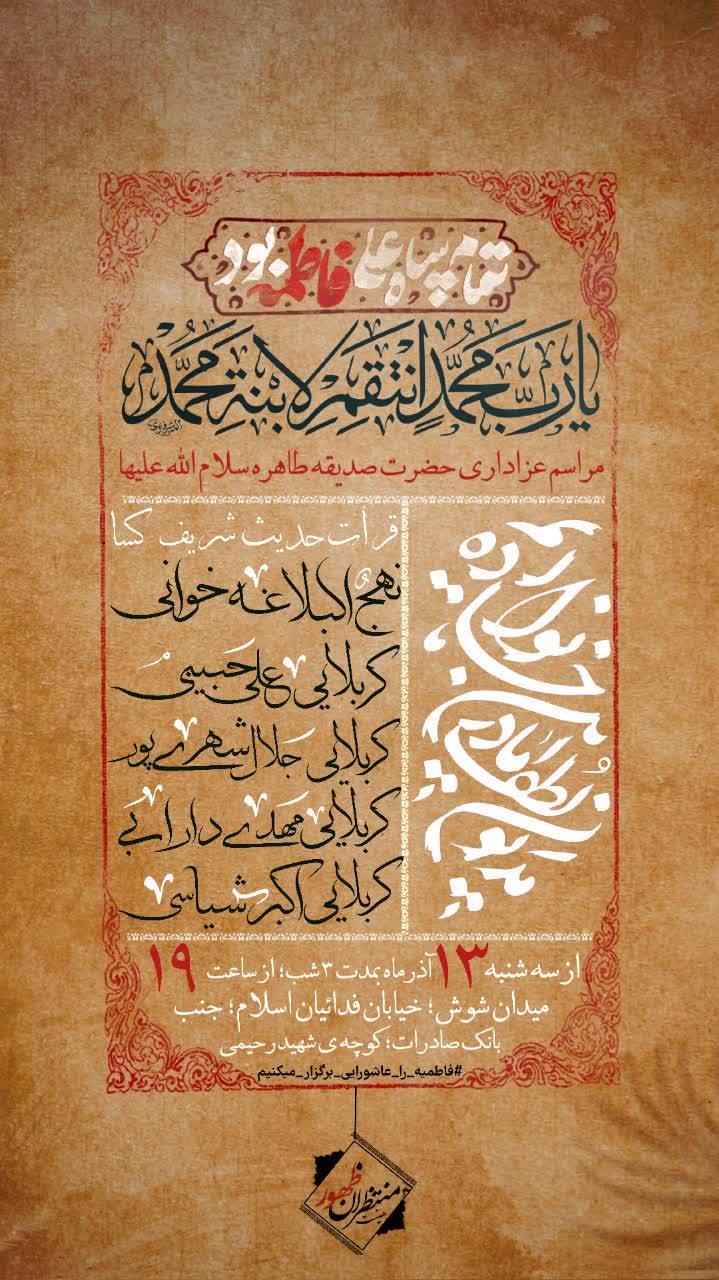 تمام پناه علی فاطمه بود
یا رَبَّ مُحَمَّدٍ اِنْتَقِمْ لِابْنَةِ مُحَمَّدٍ
مراسم عزاداری حضرت صدیقه طاهره سلام الله علیها
قرائت حدیث شریف کسا
نهج البلاغه خوانی
کربلایی علی حبیبی
کربلایی جلال شهری پور
کربلایی مهدی دارابی
کربلایی اکبر شیاسی
از سه شنبه ۱۳ آذر ماه بمدت ۳ شب؛ از ساعت ۱۹
میدان شوش؛ خیابان فدائیان اسلام؛ جنب
بانک صادرات؛ کوچه ی شهید رحیمی
#فاطمیه_را_عاشورایی_برگزار_میکنیم
هیئت منتظران ظهور